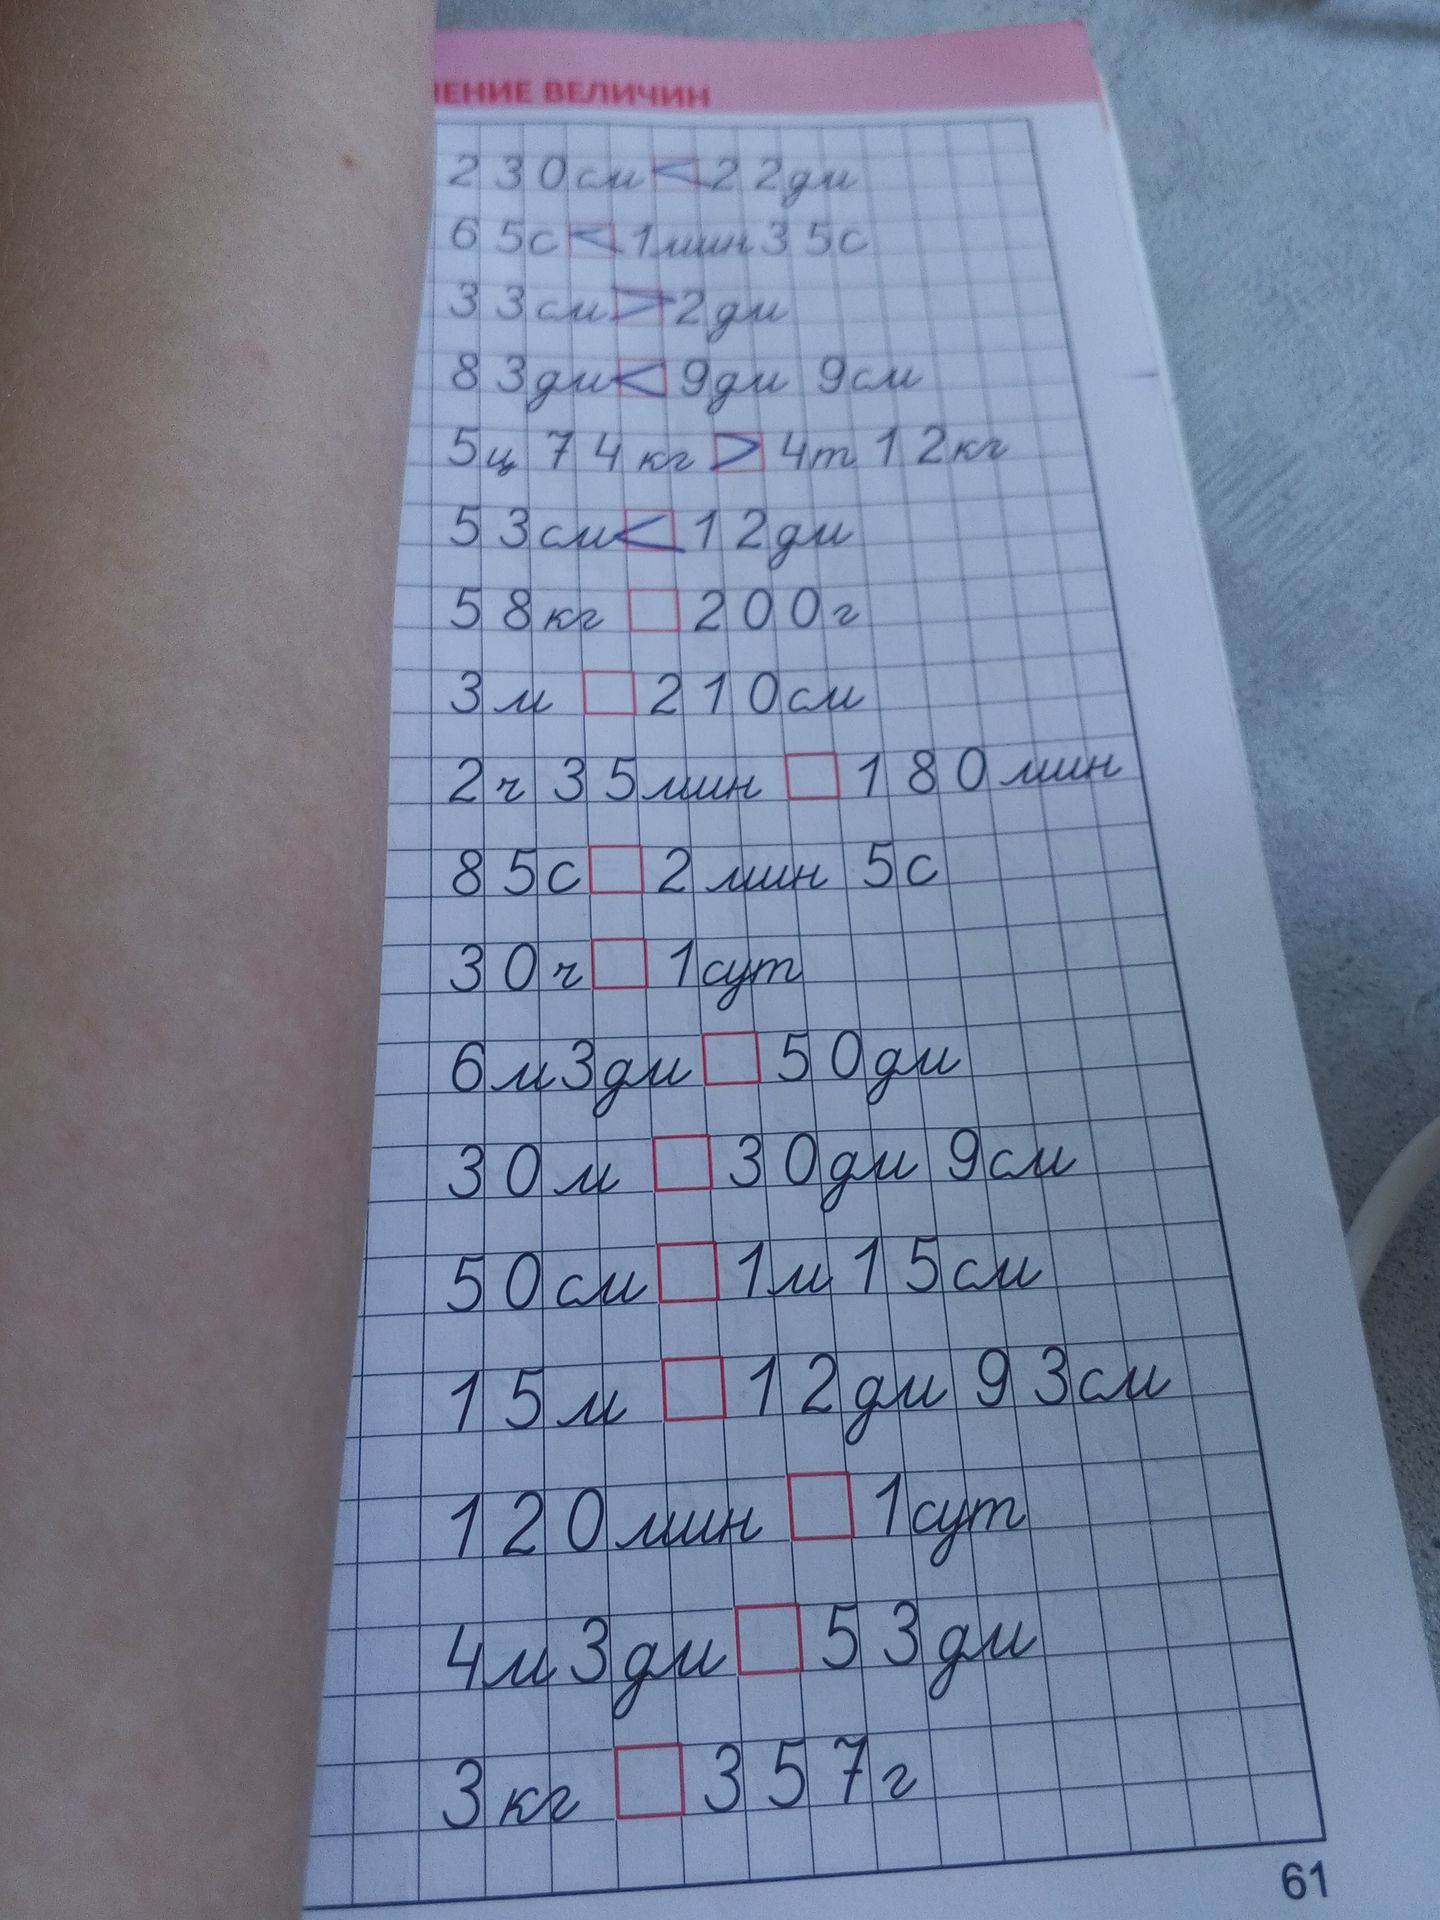 ЕНИЕ ВЕЛИЧИН
230см < 22дм
65с < 1мин35с
33см > 2дм
83дм < 9дм 9см
5ц 74кг > 4т 12кг
53см < 12дм
58кг □ 200г
3м □ 210см
2ч 35мин □ 180мин
85с □ 2мин 5с
30ч □ 1сут
6м3дм □ 50дм
30м □ 30дм 9см
50см □ 1м15см
15м □ 12дм 93см
120мин □ 1сут
4м3дм □ 53дм
3кг □ 357г
61